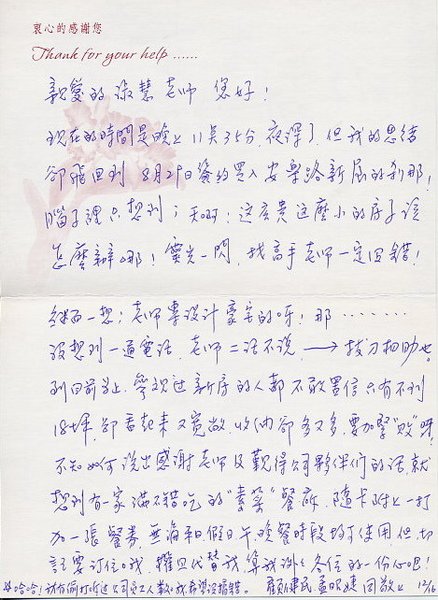 衷心的感謝您
Thank for your help ......
親愛的淑慧老師 您好!
現在的時間是晚上11點35分,夜深了,但我的思緒
卻飛回到 8月29日簽約買入安樂路新居的剎那!
腦子裡只想到:天啊!這麼貴這麼小的房子該
怎麼辦哪!靈光一閃 找高手老師一定沒錯!
多想:老師專設計豪宅的呀!那.......
沒想到一通電話,老師二話不說 → 拔刀相助也
到目前為止,參觀過新房的人都不敢置信只有不到
18坪,卻看起來又寬敞,收納卻多又多,要加擊"敗"呀
不知如何說出感謝老師及觀得公司夥伴們的話,就
想到有一家滿不錯吃的"素菜"餐廳,隨卡附上一打
加一張餐券,無論平日假日午、晚餐時段均可使用但,切
記要訂位哦,權且代替我算我謝謝各位的一份心吧!
哈哈!我有偷打聽過公司人數,我希望沒搞錯。 顧健民 孟明婕 同敬上 12/16